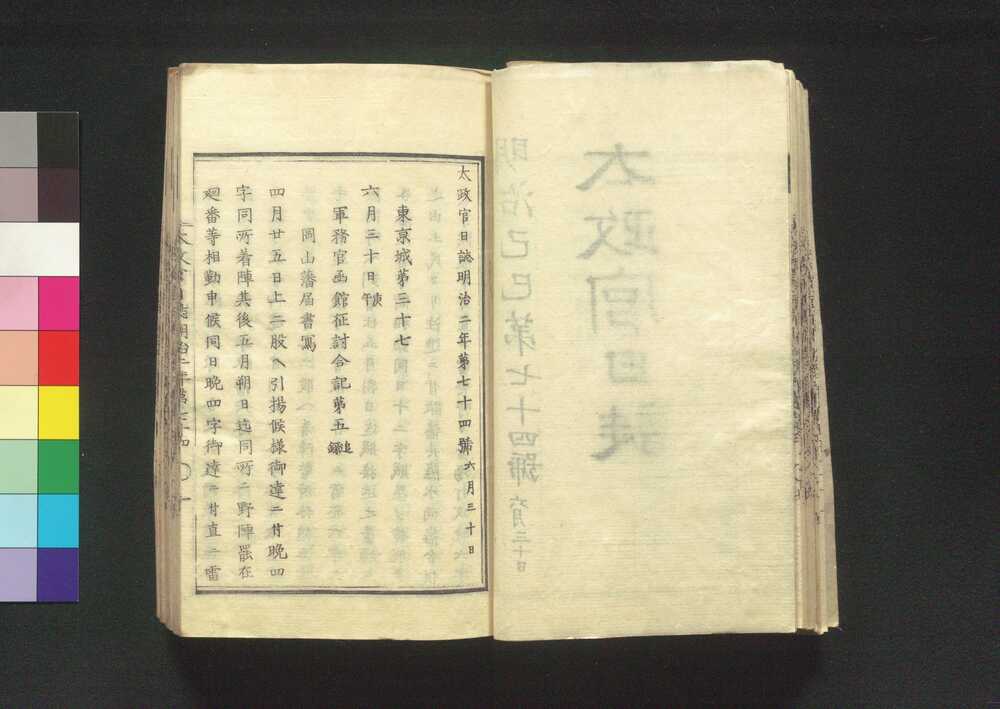 太政官日誌
明治己巳第七十四號 六月三十日
太政官日誌明治二年第七十四號 六月三十日
東京城第三十七
六月三十日 庚午
軍務官函館征討合記第五 追録
岡山藩届書寫
四月廿五日上二股ヘ引揚候樣御達ニ付晩四
字同所着陣其後五月朔日迄同所ニ野陣罷在
廻番等相勤申候同日晩四字御達ニ付直ニ雷